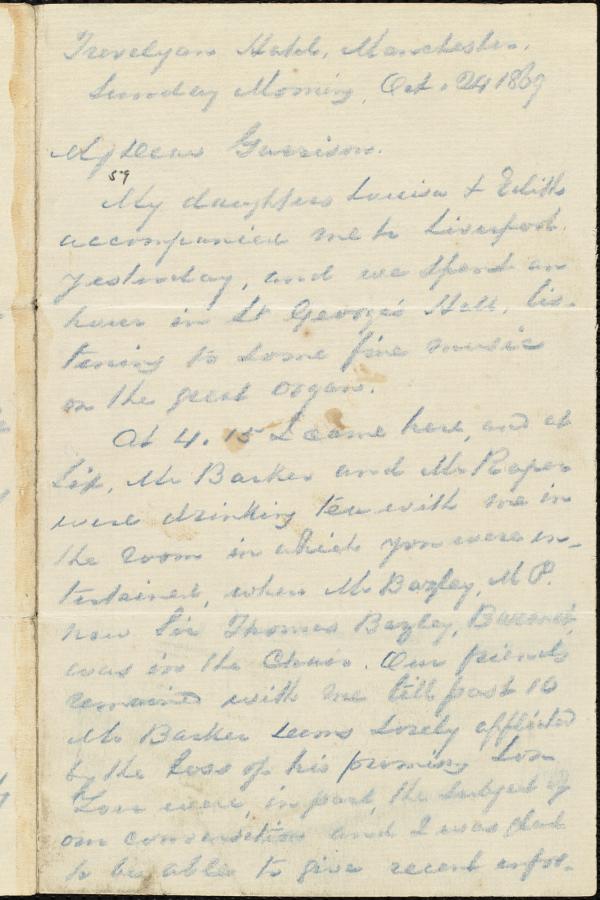 Trevelyan Hotel, Manchester.
Sunday Morning, Oct. 24 1869
My Dear Garrison.
59
My daughters Louisa & Edith
accompanied me to Liverpool
yesterday, and we spent an
hour in St George's Hall, lis-
tening to some fine music
on the great organ.
At 4.15 I came here, and at
Six, Mr Barker and Mr Raper
were drinking tea with me in
the room in which you were en-
tertained, when Mr Bazley, M.P.
now Sir Thomas Bazley, Baronet,
was in the Chair. Our friends
remained with me till past 10
Mr Barker seems sorely afflicted
by the loss of his promising Son
You were, in part, the subject of
our conversation and I was glad
to be able to give recent infor-